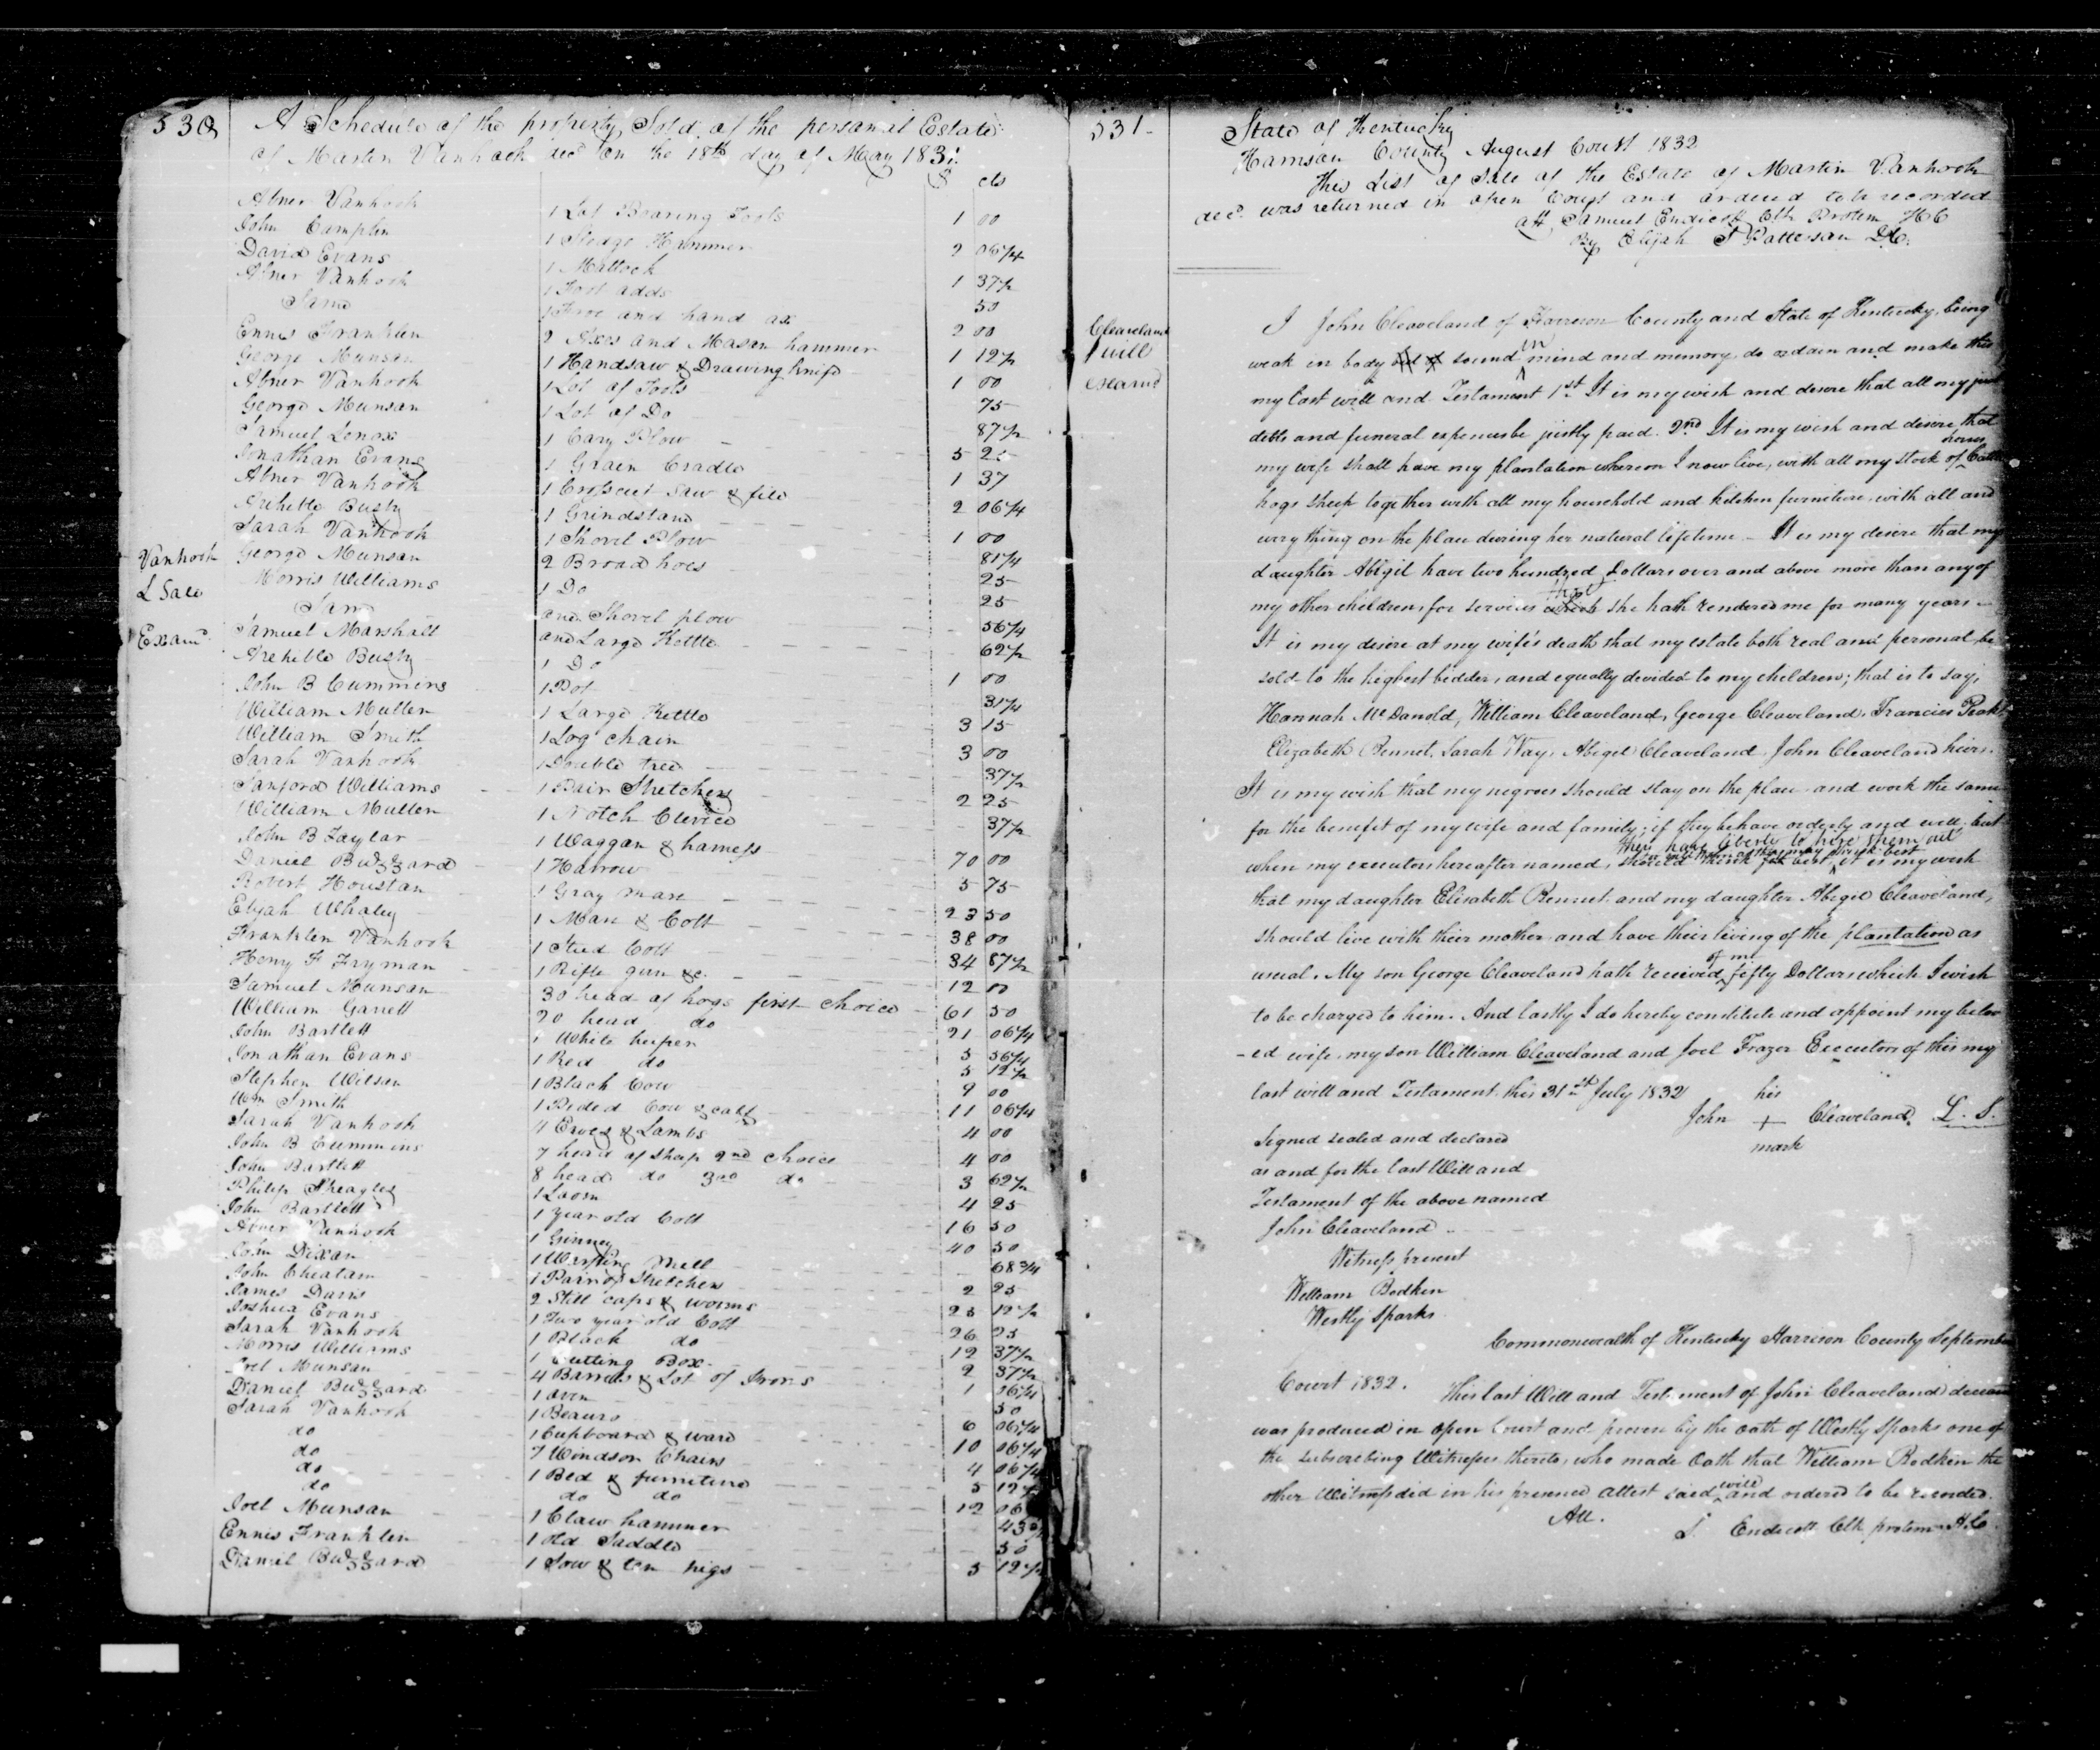 530
A Schedule of the property Sold of the personal Estate
of Martin Vanhook decd on the 18th day of May 1831
$ cts
Abner Vanhook 1 Lot Boaring Tools 1 00
John Camplin 1 Sledge Hammer 2 06 1/4
David Evans 1 Mattock 1 37 1/2
Abner Vanhook 1 Foot adds 50
Same 1 Froe and hand ax 2 00
Ennis Franklin 2 Axes and Mason hammer 1 12 1/2
George Munson 1 Handsaw & Drawing knife 1 00
Abner Vanhook 1 Lot of Tools 75
George Munson 1 Lot of Do 87 1/2
Samuel Lenox 1 Cary Plow 5 25
Jonathan Evans 1 Grain Cradle 1 37
Abner Vanhook 1 Crosscut Saw & file 2 06 1/4
Archible Busby 1 Grindstand 1 00
Sarah Vanhook 1 Shovel Plow 81 1/4
George Munson 2 Broad hoes 25
Morris Williams 1 Do 25
Same and Shovel plow 56 1/4
Samuel Marshall and Large Kettle 62 1/2
Archible Busby 1 Do 1 00
John B Cummins 1 Pot 31 1/4
William Mullen 1 Large Kettle 3 15
William Smith 1 Log chain 3 00
Sarah Vanhook 1 Double tree 37 1/2
Sanford Williams 1 Pair Stretchers 2 25
William Mullen 1 Notch Clevice 37 1/2
John B Taylor 1 Waggan & harness 70 00
Daniel Buzzard 1 Harrow 5 75
Robert Houstan 1 Gray mare 23 50
Elijah Whaley 1 Mare & Colt 38 00
Franklin Vanhook 1 Stud Colt 34 87 1/2
Henry F Fryman 1 Rifle gun &c. 12 00
Samuel Munson 30 head of hogs first choice 61 50
William Garrett 20 head do 21 06 1/4
John Bartlett 1 White heifer 5 56 1/4
Jonathan Evans 1 Red do 5 12 1/2
Stephen Wilson 1 Black Cow 9 00
Wm Smith 1 Pided Cow & calf 11 06 1/4
Sarah Vanhook 4 Ewes & Lambs 4 00
John B Cummins 7 head of sheep 2nd choice 4 00
John Bartlett 8 head do 3rd do 3 62 1/2
Philip Sheagley 1 Loom 4 25
John Bartlett 1 year old Colt 16 50
Abner Vanhook 1 Ginney 40 50
John Dixon 1 Mill 68 3/4
John Cheatam 1 Pair of Stretchers 2 25
James Davis 2 Still caps & worms 25 12 1/2
Joshua Evans 1 Two year old Colt 26 25
Sarah Vanhook 1 Black do 12 37 1/2
Morris Williams 1 Cutting Box 2 37 1/2
Joel Munson 4 Barrels & Lot of Irons 1 06 1/4
Daniel Buzzard 1 Oven 50
Sarah Vanhook 1 Beauro 6 06 1/4
do 1 Cupboard & ware 10 06 1/4
do 7 Windsor Chairs 4 06 1/4
do 1 Bed & furniture 5 12 1/2
do do do 12 06
Joel Munson 1 Claw hammer 43
Ennis Franklin 1 Old Saddle 50
Daniel Buzzard 1 Sow & ten pigs 5 12 1/2
Vanhook
L Sale
Examd
531
State of Kentucky
Harrison County August Court 1832
This List of Sale of the Estate of Martin Vanhook
decd. was returned in open Court and ordered to be recorded
att Samuel Endicott Clk Protem HC
By Elijah S Patterson DC.
Cleaveland
will
examd
I John Cleaveland of Harrison County and State of Kentucky, being
weak in body and of sound in mind and memory do ordain and make this
my last will and Testament 1st It is my wish and desire that all my just
debts and funeral expences be justly paid. 2nd It is my wish and desire that
my wife shall have my plantation whereon I now live, with all my stock of horses Cattle
hogs sheep together with all my household and kitchen furniture with all and
every thing on the place during her natural lifetime - It is my desire that my
daughter Abigil have two hundred Dollars over and above more than any of
my other children, for services which that she hath rendered me for many years -
It is my desire at my wife's death that my estate both real and personal be
sold to the highest bidder, and equally devided to my children; that is to say,
Hannah McDanold, William Cleaveland, George Cleaveland, Francies
Elizabeth Rennet, Sarah Way, Abigel Cleaveland John Cleaveland heirs.
It is my wish that my negroes should stay on the place and work the same
for the benefit of my wife and family; if they behave orderly and well but
when my executors hereafter named, should think fit best they have liberty to hire them out it is my wish
that my daughter Elizabeth Rennet and my daughter Abegel Cleaveland,
should live with their mother and have their living of the plantation as
usual. My son George Cleaveland hath received of me fifty Dollars which I wish
to be charged to him. And lastly I do hereby constitute and appoint my belov
-ed wife, my son William Cleaveland and Joel Frazer Executors of this my
last will and Testament this 31st July 1832
his
John + Cleaveland L. S.
mark
Segned sealed and declared
as and for the last Will and
Testament of the above named
John Cleaveland
Witness present
William Bodken
Westly Sparks
Commonwealth of Kentucky Harrison County September
Court 1832. This last Will and Testament of John Cleaveland
was produced in open Court and proven by the oath of Westly Sparks one of
the subscribing Witnesses thereto, who made Oath that William Bodken the
other Witness did in his presence attest said will and ordered to be recorded.
Att. S. Endicott Clk protem HC